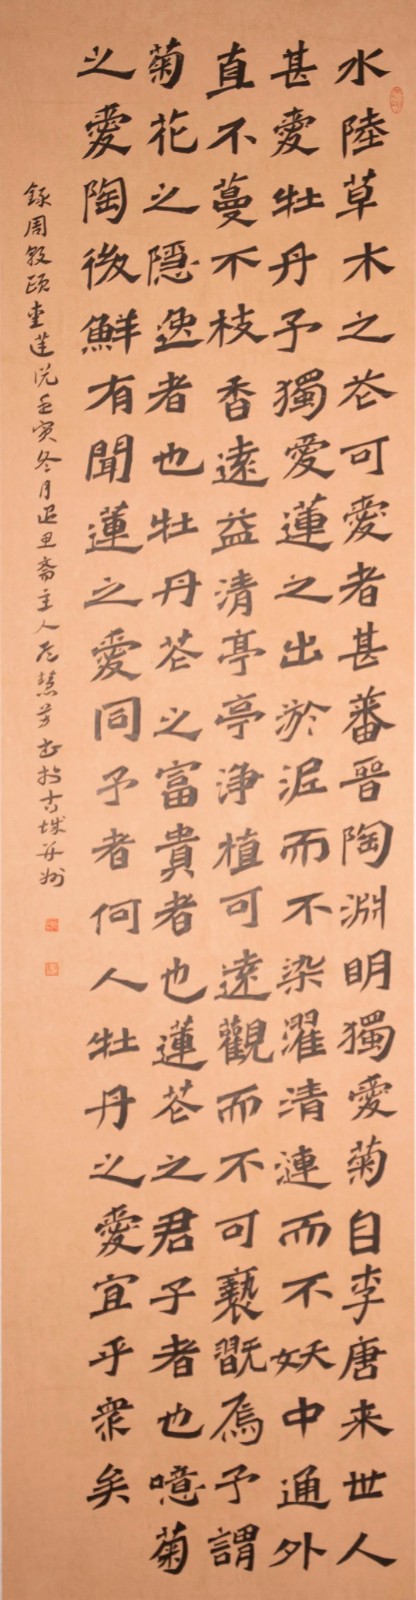 水陸草木之花可愛者甚蕃晉陶淵明獨愛菊自李唐来世人
甚愛牡丹予獨愛蓮之出淤泥而不染濯清連而不妖中通外
直不蔓不枝香遠益清亭亭浄植可遠觀而不可褻翫焉予謂
菊花之隱逸者也牡丹花之富貴者也蓮花之君子者也噫菊
之愛陶後鮮有聞蓮之愛同予者何人牡丹之愛宜乎衆矣
錄周敦頤愛蓮說壬寅冬月退思齋主人左慧芳書於古城并州